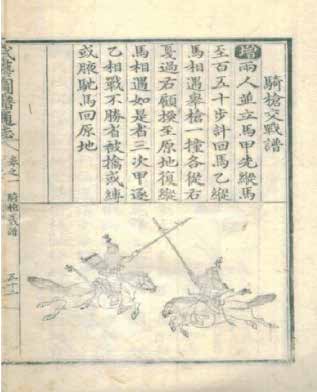 騎槍交戰譜
增兩人並立馬甲先縱馬
至百五十步計回馬乙縱
馬相遇擧槍一撞各從右
戞過右顧換至原地復縱
馬相遇如是者三次甲逐
乙相戰不勝者被擒或縛
或腋馳馬回原地
武藝圖譜通志 卷之